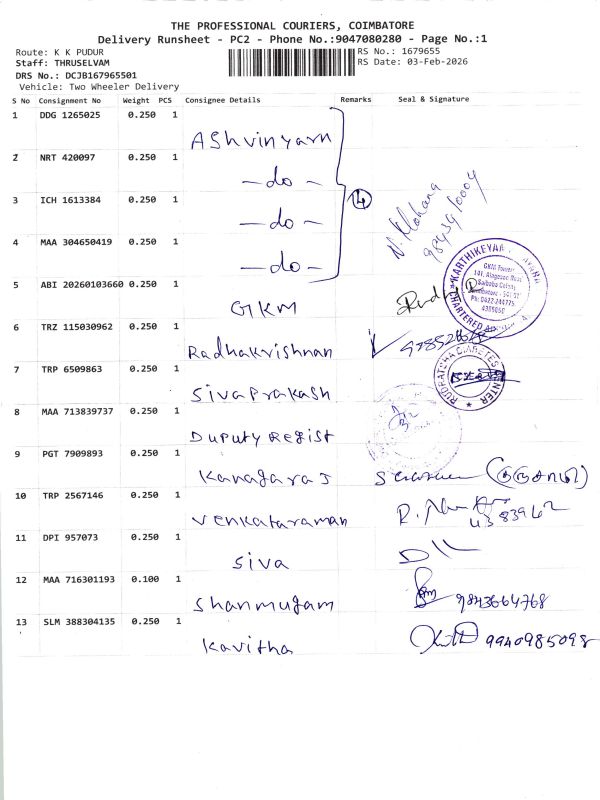 THE PROFESSIONAL COURIERS, COIMBATORE
Delivery Runsheet - PC2 - Phone No.:9047080280 - Page No.:1
Route: K K PUDUR
RS No.: 1679655
Staff: THRUSELVAM
RS Date: 03-Feb-2026
DRS No.: DCJB167965501
Vehicle: Two Wheeler Delivery
S No Consignment No Weight PCS Consignee Details Remarks Seal & Signature
1 DDG 1265025 0.250 1
Ashvinyarn
2 NRT 420097 0.250 1
—do—
3 ICH 1613384 0.250 1
—do—
4
4 MAA 304650419 0.250 1
—do—
N. Mohana
5 ABI 20260103660 0.250 1
GKM
GKM Tower
6 TRZ 115030962 0.250 1
Radhakrishnan
7 TRP 6509863 0.250 1
Sivaprakash
8 MAA 713839737 0.250 1
Duputy Regist
9 PGT 7909893 0.250 1
Kanagaraj
10 TRP 2567146 0.250 1
Venkataraman
11 DPI 957073 0.250 1
Siva
12 MAA 716301193 0.100 1
Shanmugam
9843664768
13 SLM 388304135 0.250 1
Kavitha
9940985098